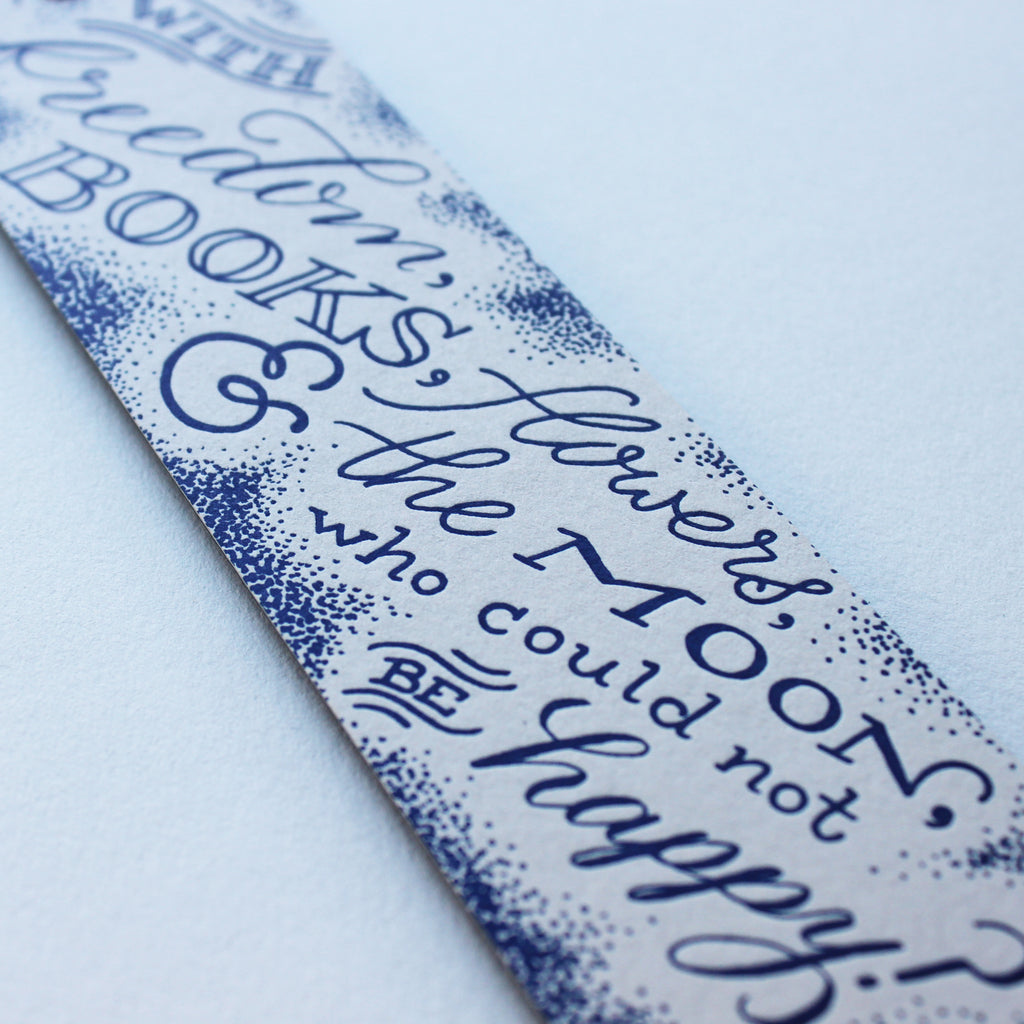 WITH
freedom,
BOOKS, flowers,
& the MOON,
who could not
BE happy?